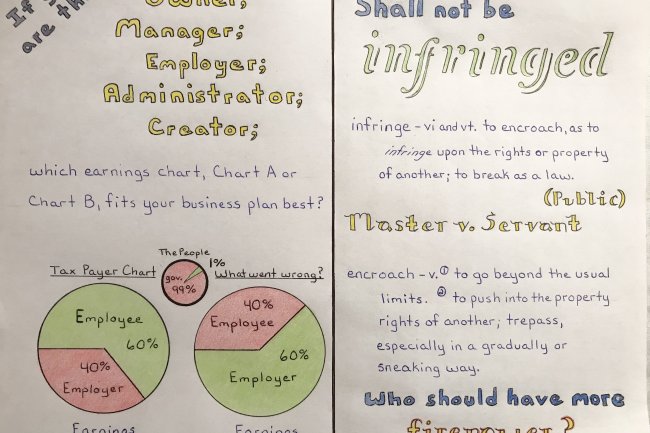 If
are the
Owner;
Manager;
Employer;
Administrator;
Creator;
which earnings chart, Chart A or
Chart B, fits your business plan best?
The People
1%
gov.
99%
Tax Payer Chart
Employee
60%
40%
Employer
Earnings
What went wrong?
40%
Employee
60%
Employer
Earnings
Shall not be
infringed
infringe - vi and vt. to encroach, as to
infringe upon the rights or property
of another; to break as a law.
(Public)
Master v. Servant
encroach - v. ① to go beyond the usual
limits. ② to push into the property
rights of another; trepass,
especially in a gradually or
sneaking way.
Who should have more
firepower?